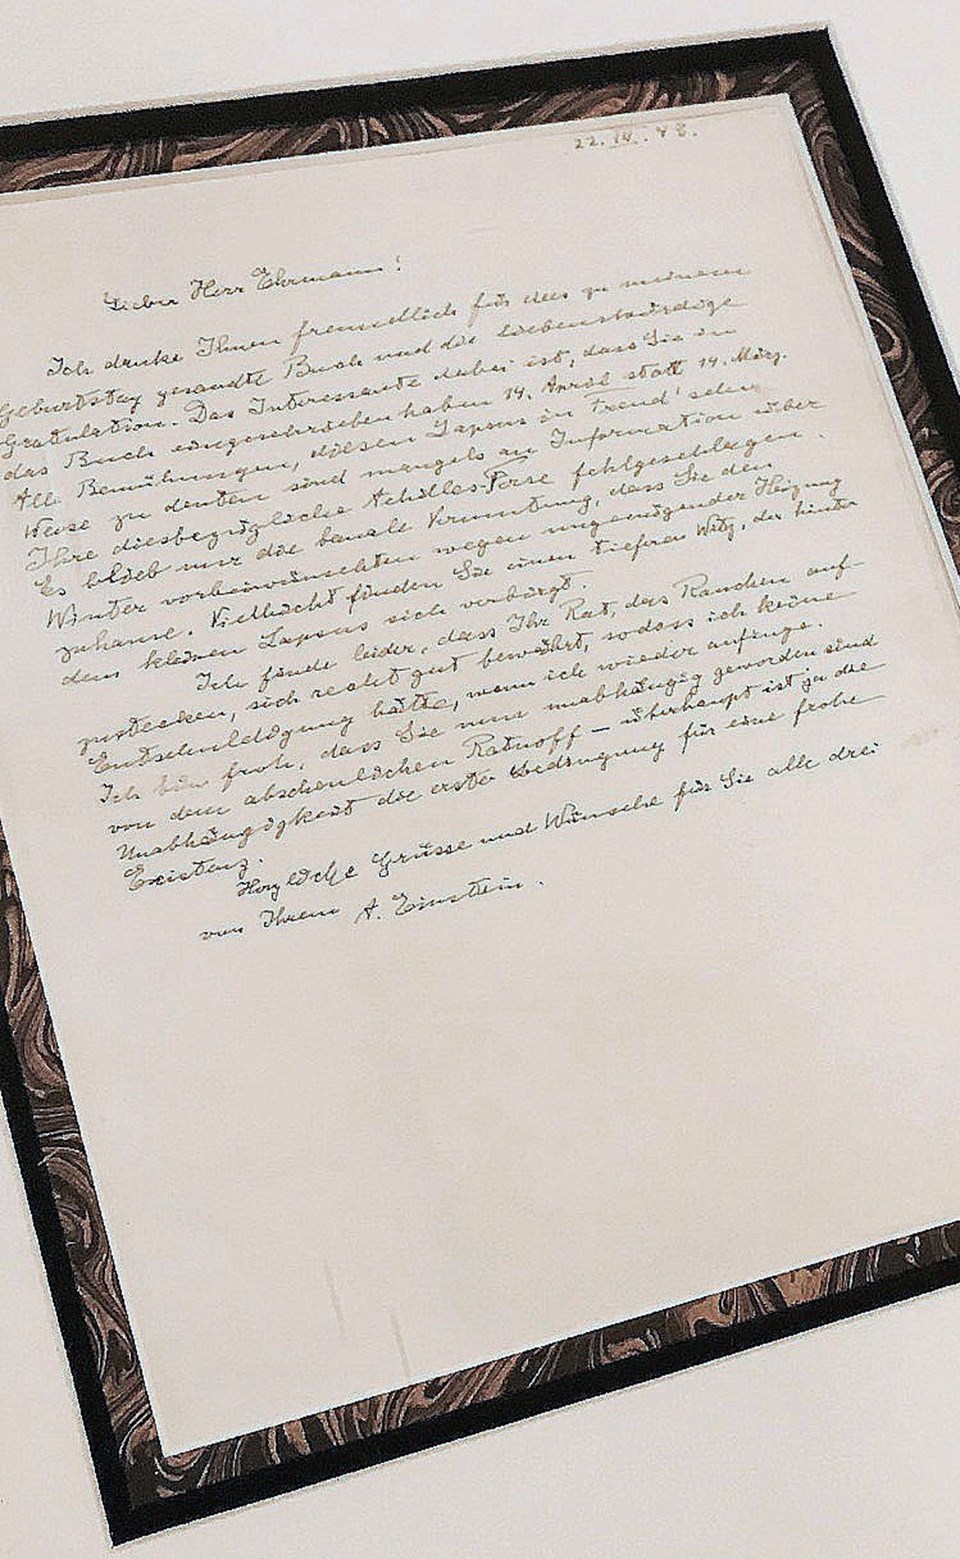 22. IV. 48.
Lieber Herr Ehrmann!
Ich danke Ihnen freundlich für das zu meinem
Geburtstag gesandte Buch und die liebenswürdige
Gratulation. Das Interessante dabei ist, dass Sie in
das Buch eingeschrieben haben 14. April statt 14. März.
Alle Bemühungen, diesen Lapsus in Freud'scher
Weise zu deuten sind mangels an Information über
Ihre diesbezügliche Achilles-Ferse fehlgeschlagen.
Es blieb nur die banale Vermutung, dass Sie den
Winter vorbeiwünschten wegen ungenügender Heizung
zuhause. Vielleicht finden Sie einen tieferen Witz, der hinter
dem kleinen Lapsus sich verbirgt.
Ich finde leider, dass Ihr Rat, das Rauchen auf-
zustecken, sich recht gut bewährt, sodass ich keine
Entschuldigung hätte, wenn ich wieder anfinge.
Ich bin froh, dass Sie nun unabhängig geworden sind
von dem abscheulichen Ratnoff — überhaupt ist ja die
Unabhängigkeit die erste Bedingung für eine frohe
Existenz.
Herzliche Grüsse und Wünsche für Sie alle drei
von Ihrem A. Einstein.